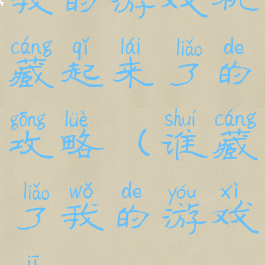 我的游戏机
cáng qǐ lái liǎo de
藏起来了的
gōng lüè shuí cáng
攻略（谁藏
liǎo wǒ de yóu xì
了我的游戏
jī